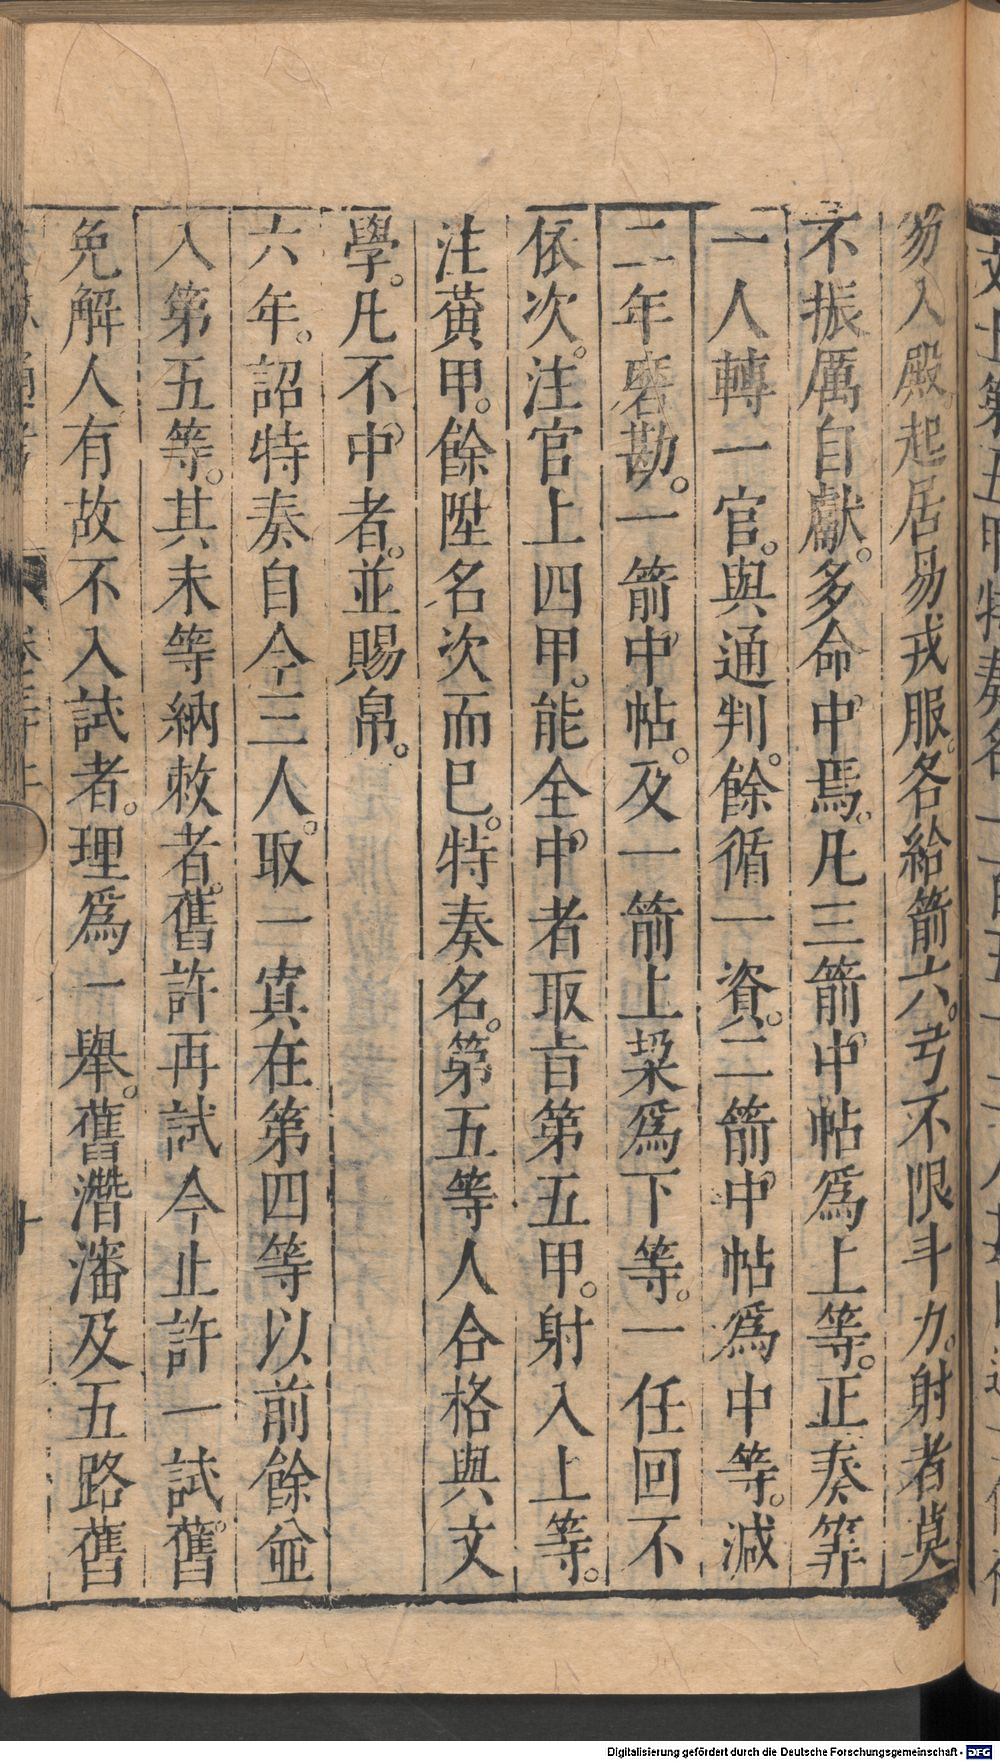 笏入殿。起居易戎服。各給箭六。弓不限斗力。射者莫
不振厲自獻。多命中焉。凡三箭中帖爲上等。正奏第
一人轉一官。與通判。餘循一資。二箭中帖爲中等。減
二年磨勘。一箭中帖。及一箭上垜爲下等。一任回不
依次。注官上四甲。能全中者取旨第五甲。射入上等。
注黃甲。餘陞名次而已。特奏名。第五等人合格與文
學。凡不中者。並賜帛。
六年。詔特奏自今三人。取一寘在第四等以前餘並
入第五等。其末等納敕者。舊許再試今止許一試。舊
免解人有故不入試者。理爲一舉。舊潛藩及五路舊
Digitalisierung gefördert durch die Deutsche Forschungsgemeinschaft - DFG